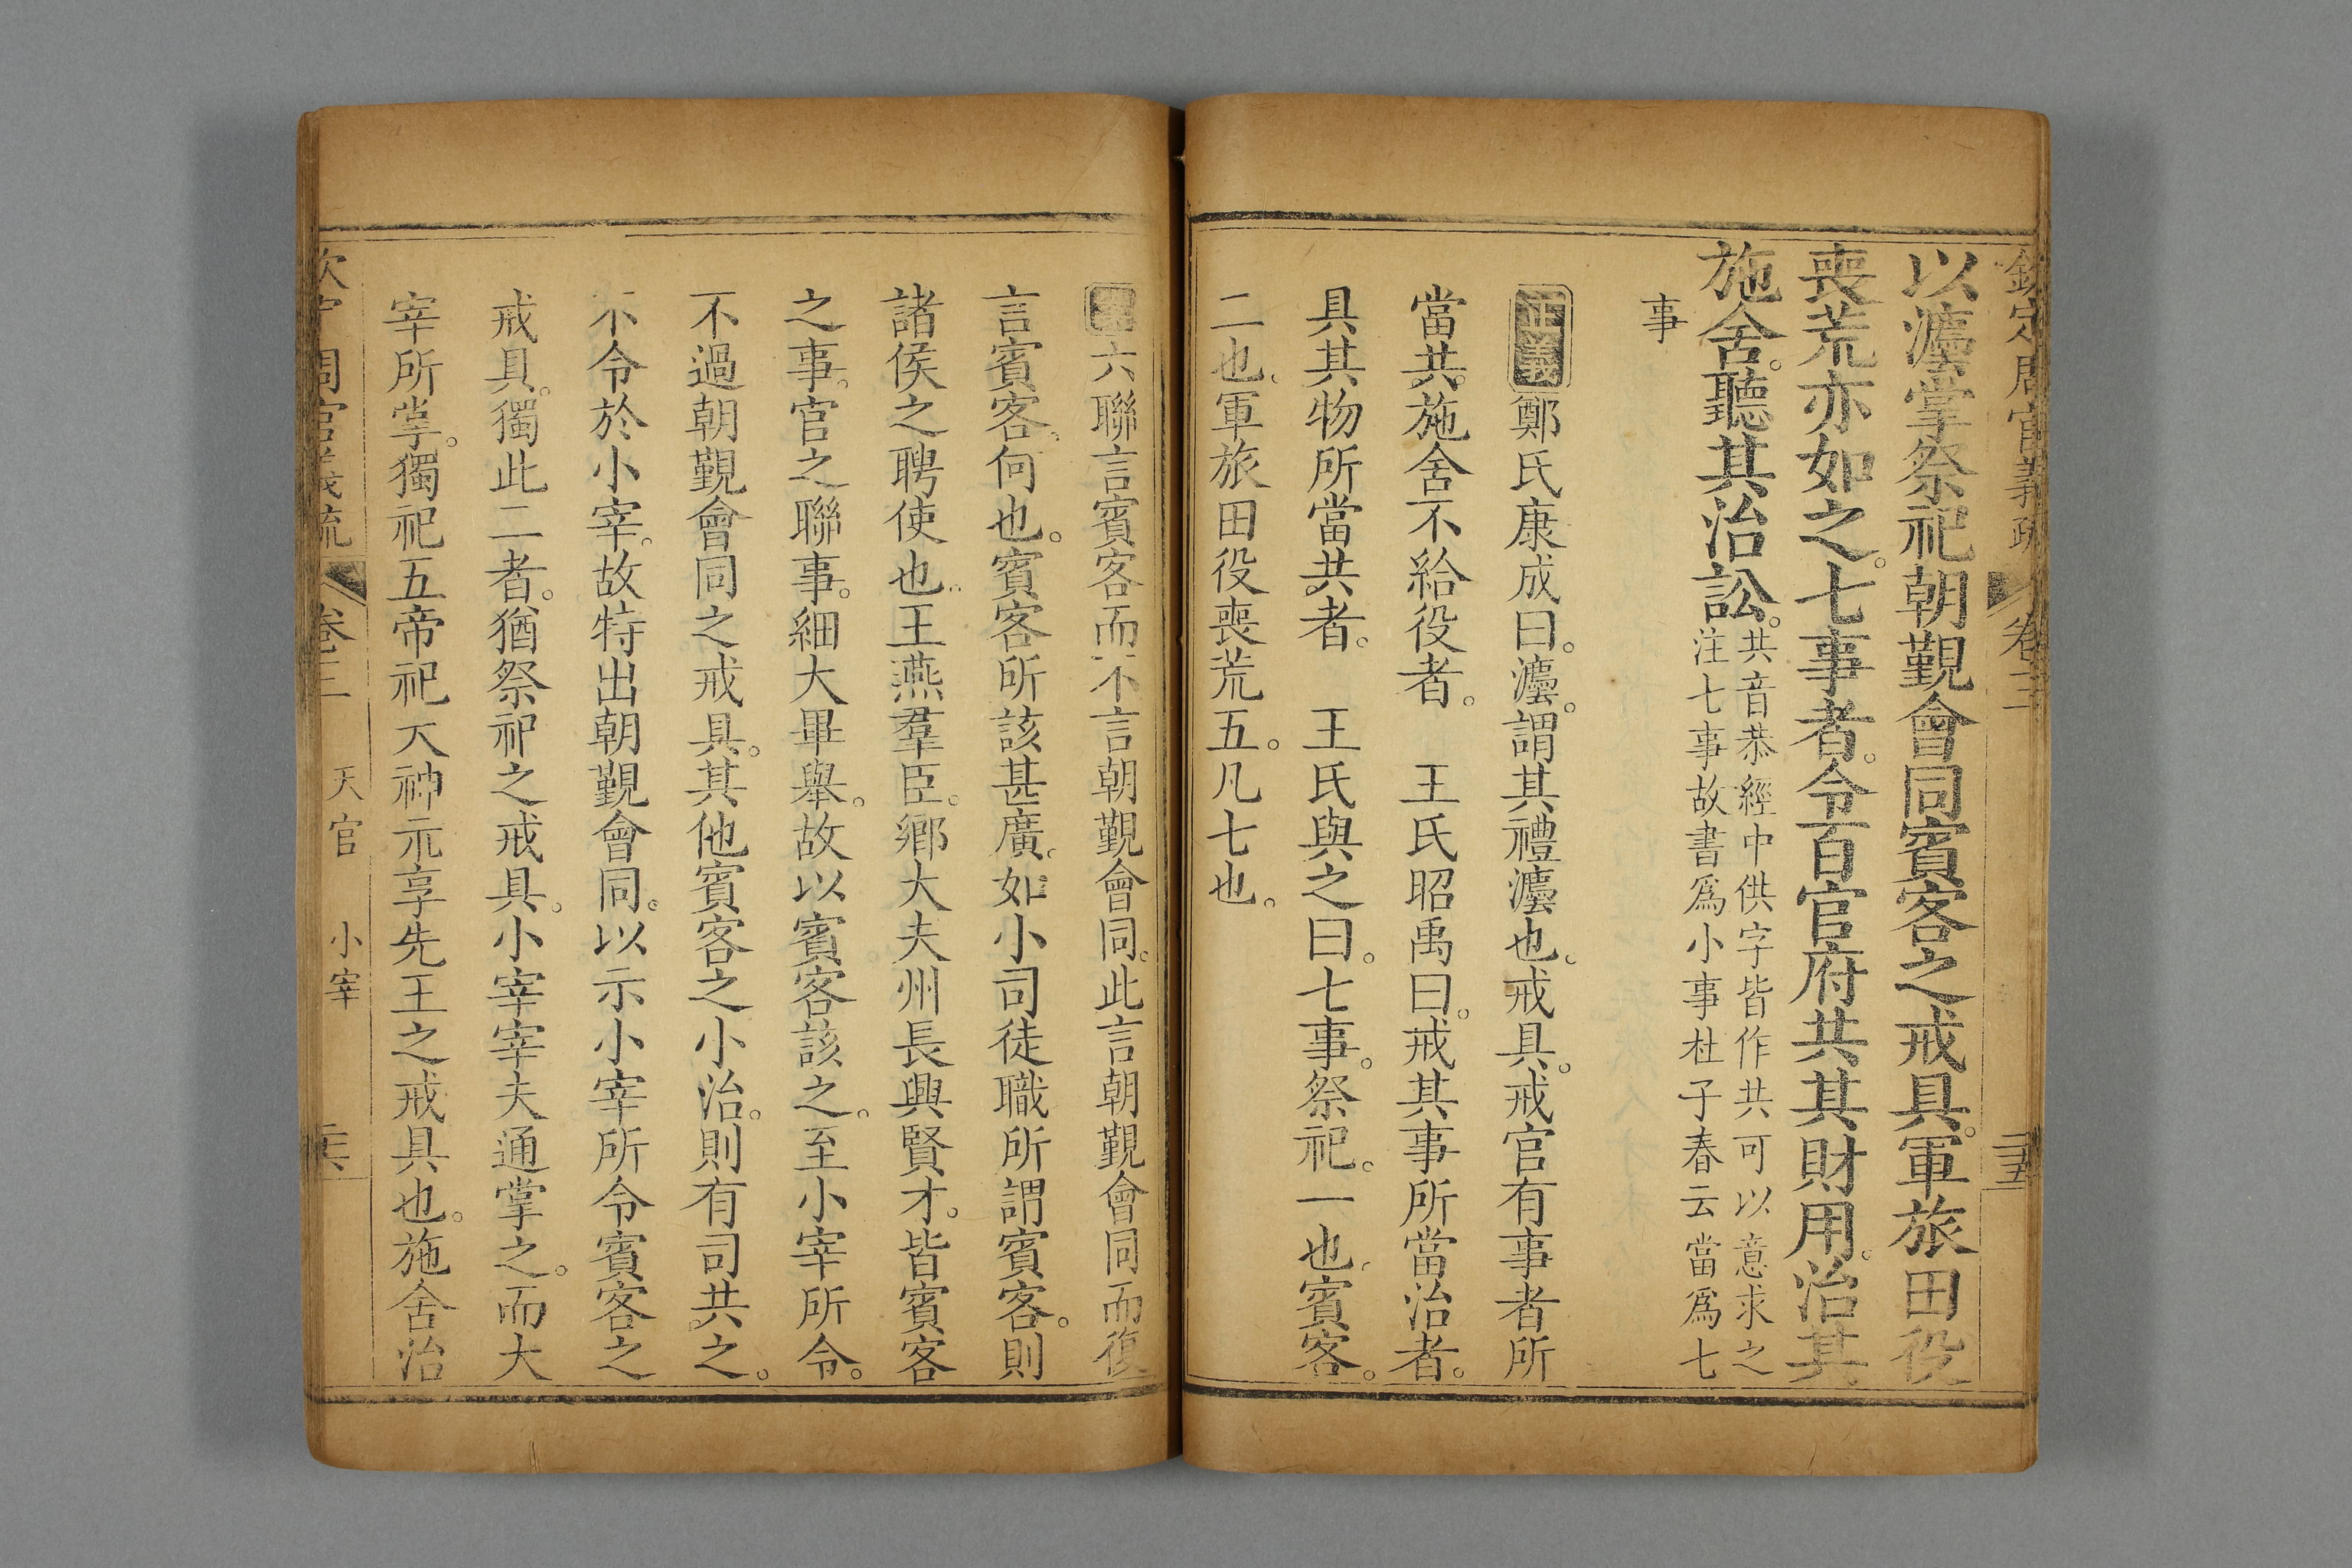 欽定周官義疏 卷三 三五
以灋掌祭祀朝覲會同賓客之戒具。軍旅田役
喪荒亦如之。七事者。令百官府共其財用。治其
施舍。聽其治訟。
共音恭經中供字皆作共可以意求之
注七事故書爲小事杜子春云當爲七
事
正義鄭氏康成曰。灋。謂其禮灋也。戒具。戒官有事者所
當共。施舍不給役者。 王氏昭禹曰。戒其事所當治者。
具其物所當共者。 王氏與之曰。七事。祭祀。一也。賓客。
二也。軍旅田役喪荒五。凡七也。
六聯言賓客而不言朝覲會同。此言朝覲會同而復
言賓客。何也。賓客所該甚廣。如小司徒職所謂賓客。則
諸侯之聘使也。王燕羣臣。鄉大夫州長興賢才。皆賓客
之事。官之聯事。細大畢舉。故以賓客該之。至小宰所令。
不過朝覲會同之戒具。其他賓客之小治。則有司共之。
不令於小宰。故特出朝覲會同。以示小宰所令賓客之
戒具。獨此二者。猶祭祀之戒具。小宰宰夫通掌之。而大
宰所掌。獨祀五帝祀天神示享先王之戒具也。施舍治
周官義疏 卷三 天官 小宰